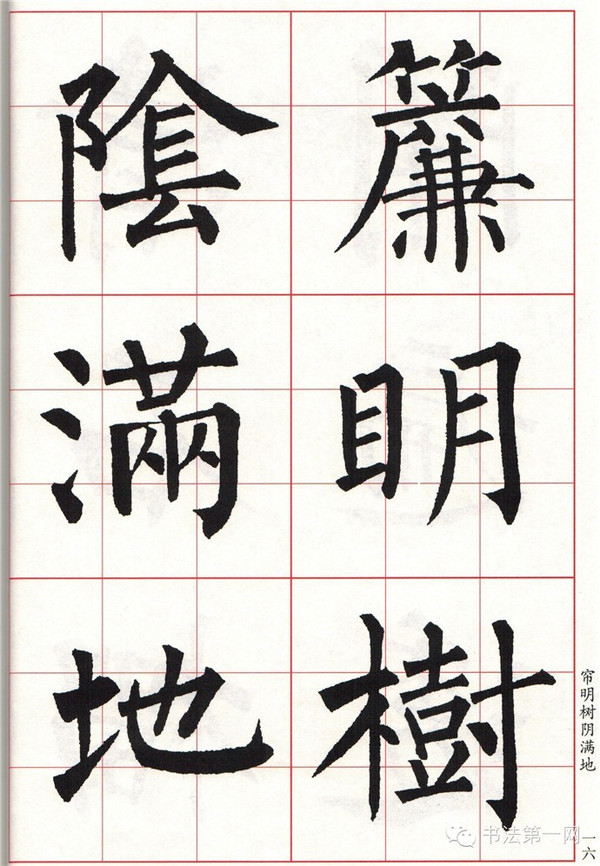 簾明樹
隂滿地
帘明树阴满地
一六
书法第一网